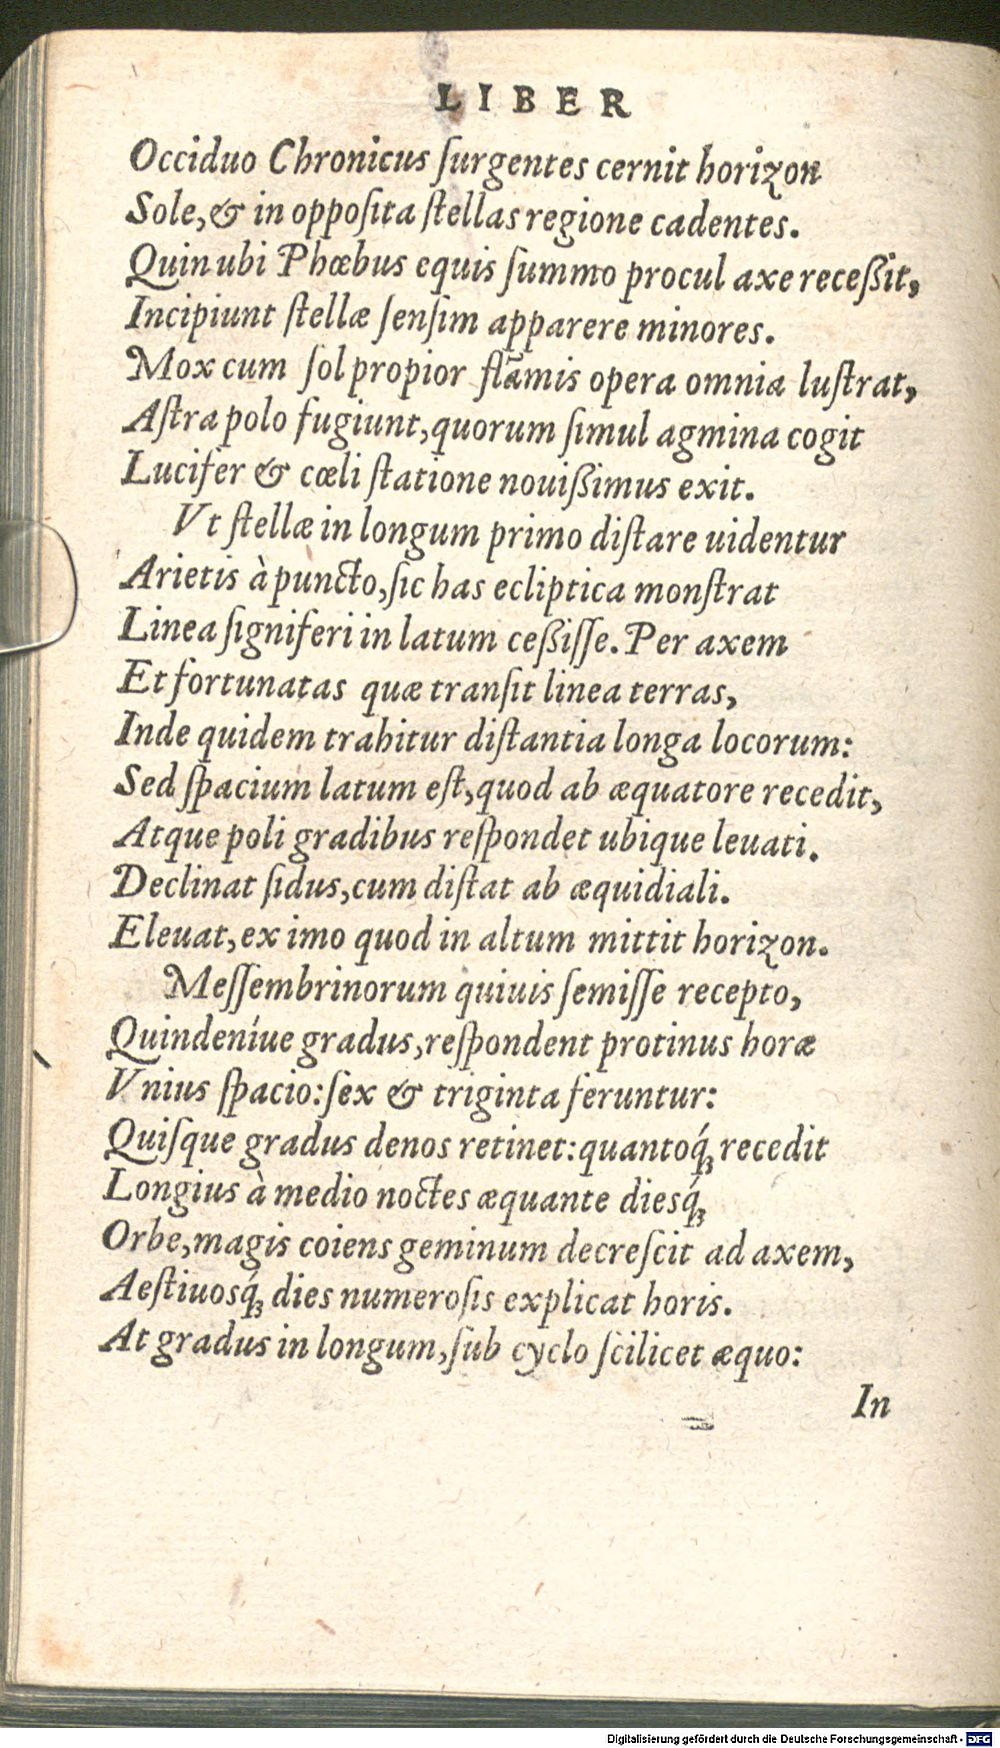 LIBER
Occiduo Chronicus ſurgentes cernit horizon
Sole, & in oppoſita ſtellas regione cadentes.
Quin ubi Phœbus equis ſummo procul axe receßit,
Incipiunt ſtellæ ſenſim apparere minores.
Mox cum ſol propior flãmis opera omnia luſtrat,
Aſtra polo fugiunt, quorum ſimul agmina cogit
Lucifer & cœli ſtatione nouißimus exit.
Vt ſtellæ in longum primo diſtare uidentur
Arietis à puncto, ſic has ecliptica monſtrat
Linea ſigniferi in latum ceßiſſe. Per axem
Et fortunatas quæ tranſit linea terras,
Inde quidem trahitur diſtantia longa locorum:
Sed ſpacium latum eſt, quod ab æquatore recedit,
Atque poli gradibus reſpondet ubique leuati.
Declinat ſidus, cum diſtat ab æquidiali.
Eleuat, ex imo quod in altum mittit horizon.
Meſſembrinorum quiuis ſemiſſe recepto,
Quindeníue gradus, reſpondent protinus horæ
Vnius ſpacio: ſex & triginta feruntur:
Quiſque gradus denos retinet: quantoq́; recedit
Longius à medio noctes æquante diesq́;
Orbe, magis coiens geminum decreſcit ad axem,
Aeſtiuosq́; dies numeroſis explicat horis.
At gradus in longum, ſub cyclo ſcilicet æquo:
In
Digitalisierung gefördert durch die Deutsche Forschungsgemeinschaft - DFG